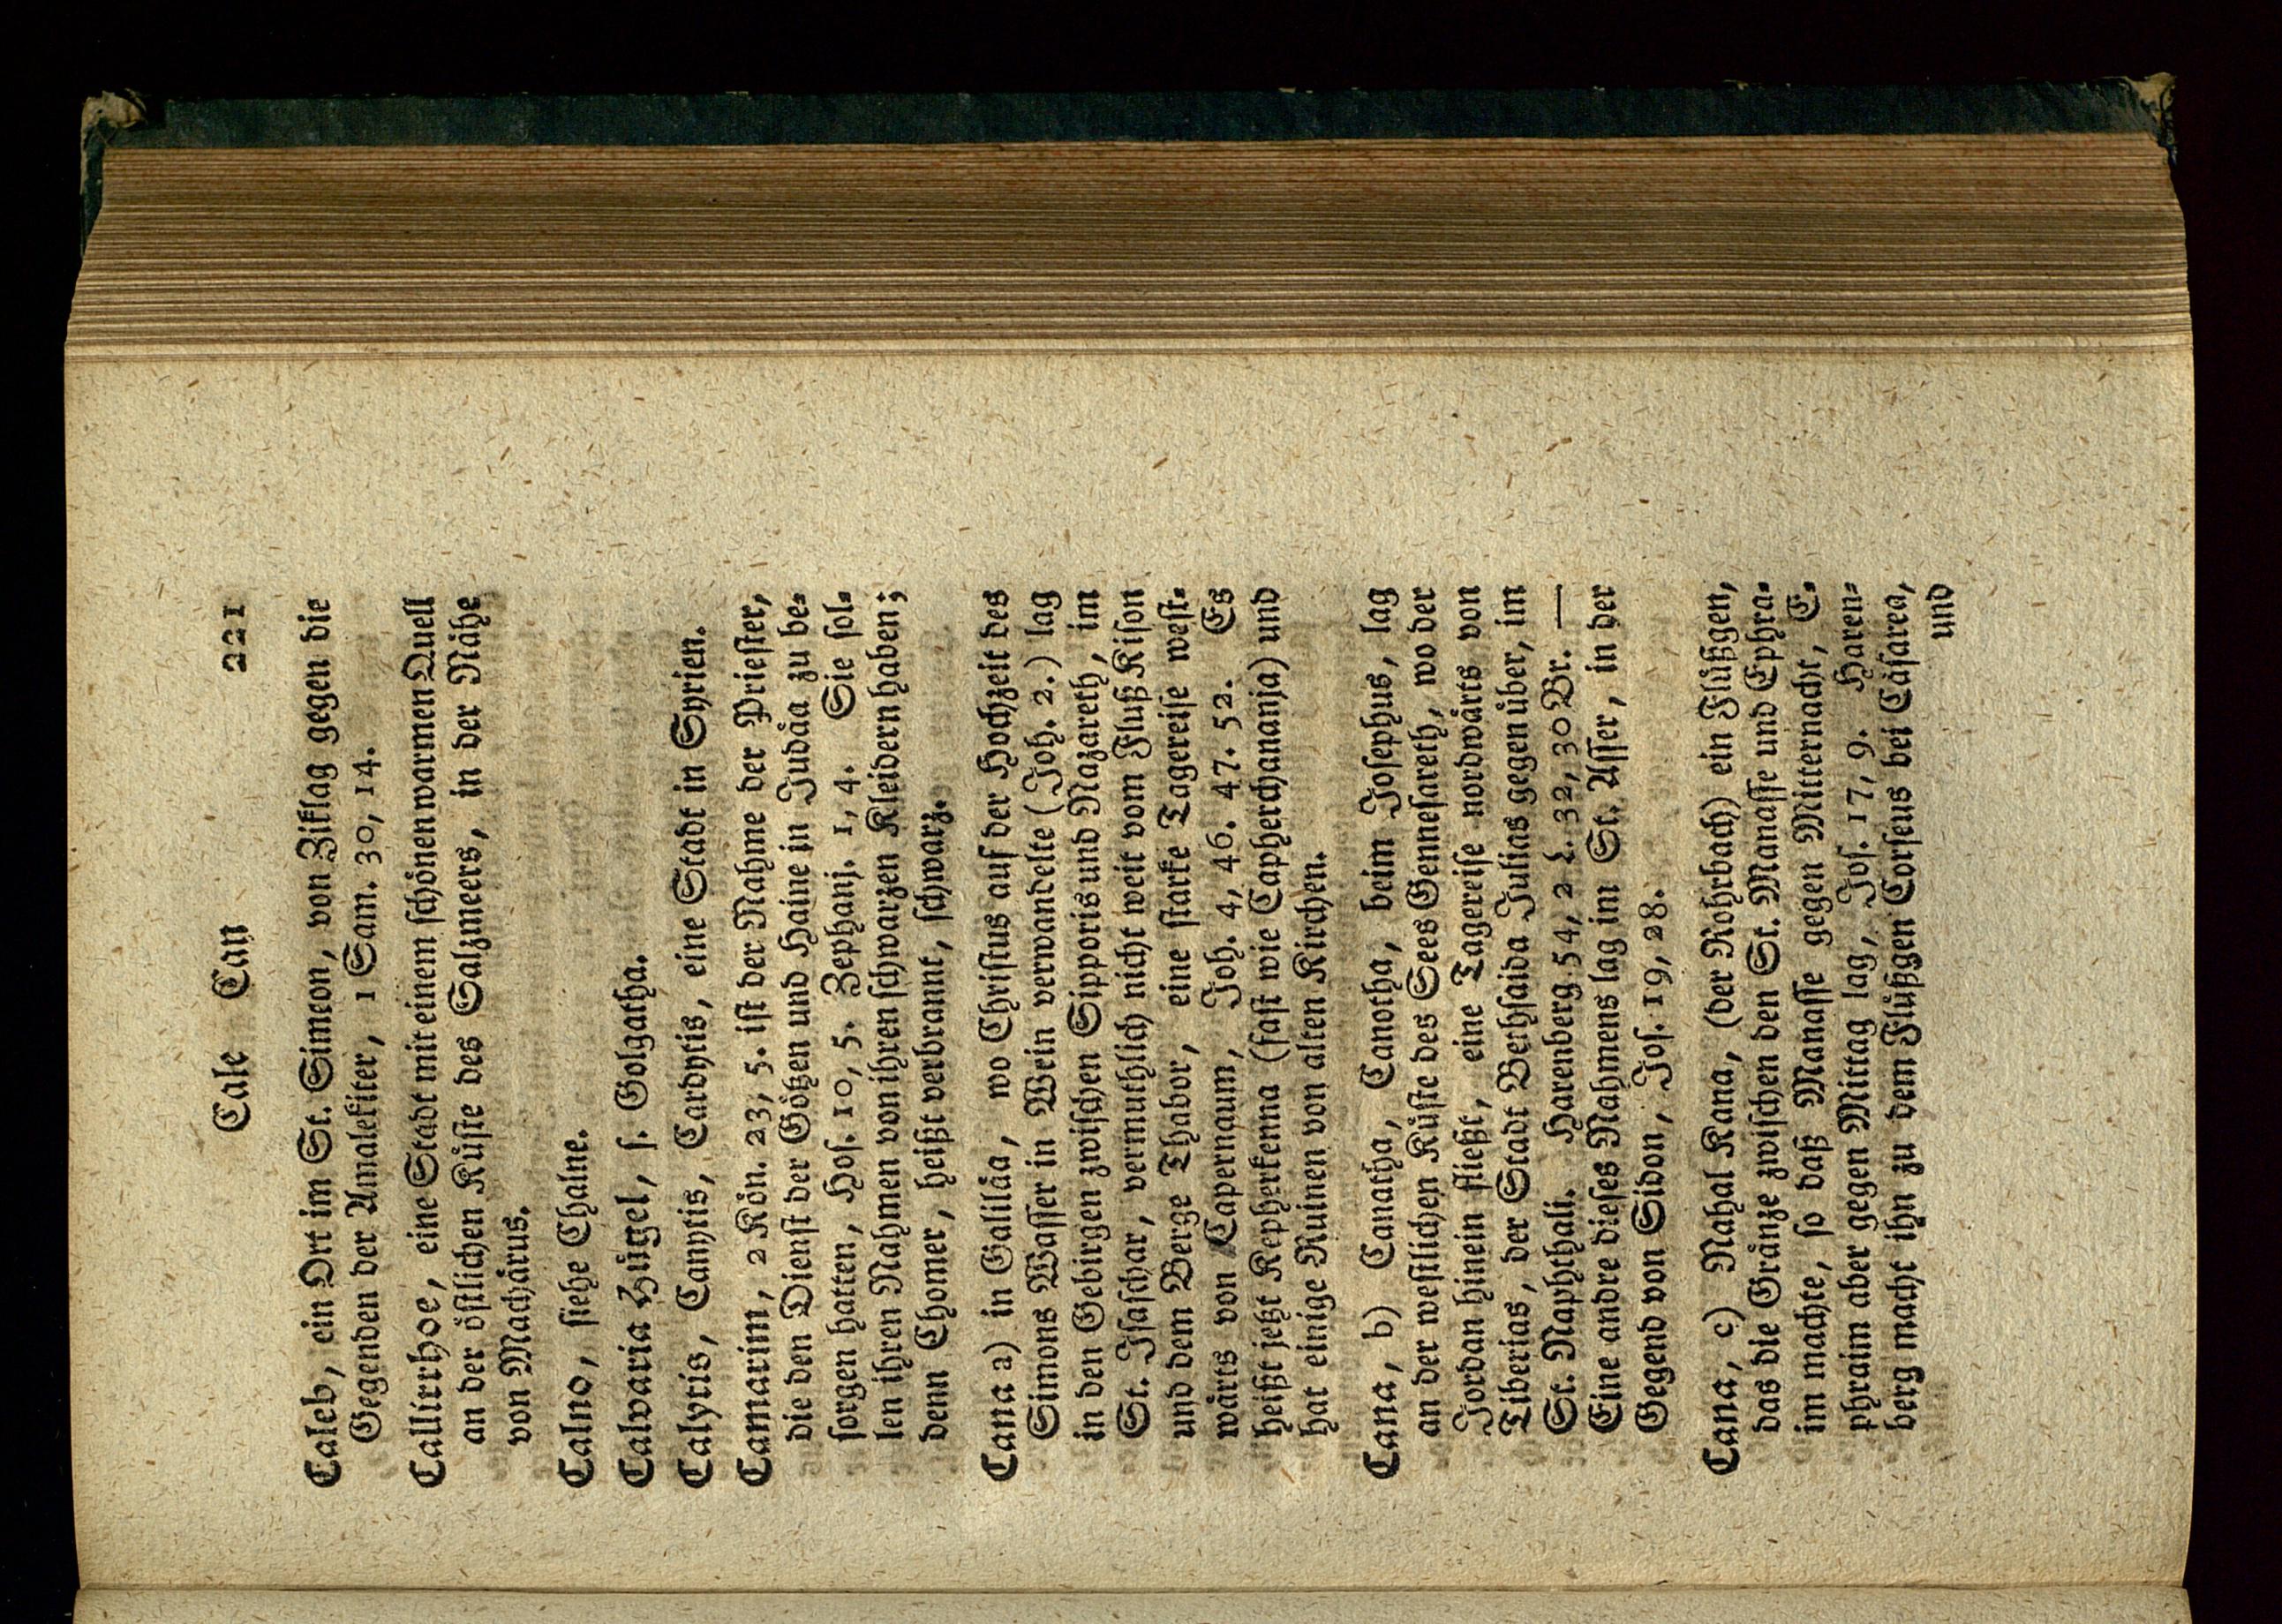 Cale Can 221
Caleb, ein Ort im St. Simeon, von Ziklag gegen die
Gegenden der Amalekiter, 1 Sam. 30, 14.
Callirrhoe, eine Stadt mit einem schönen warmen Quell
an der östlichen Küste des Salzmeers, in der Nähe
von Machärus.
Calno, siehe Chalne.
Calvaria Hügel, s. Golgatha.
Calytis, Canytis, Cardytis, eine Stadt in Syrien.
Camarim, 2 Kön. 23, 5. ist der Nahme der Priester,
die den Dienst der Götzen und Haine in Judäa zu be-
sorgen hatten, Hos. 10, 5. Zephanj. 1, 4. Sie sol-
len ihren Nahmen von ihren schwarzen Kleidern haben;
denn Chomer, heißt verbrannt, schwarz.
Cana a) in Galiläa, wo Christus auf der Hochzeit des
Simons Wasser in Wein verwandelte (Joh. 2.) lag
in den Gebirgen zwischen Sipporis und Nazareth, im
St. Isaschar, vermuthlich nicht weit vom Fluß Kison
und dem Berge Thabor, eine starke Tagereise west-
wärts von Capernaum, Joh. 4, 46. 47. 52. Es
heißt jetzt Kepherkenna (fast wie Capherchananja) und
hat einige Ruinen von alten Kirchen.
Cana, b) Canatha, Canotha, beim Josephus, lag
an der westlichen Küste des Sees Gennesareth, wo der
Jordan hinein fließt, eine Tagereise nordwärts von
Tiberias, der Stadt Bethsaida Julias gegen über, im
St. Naphthali. Harenberg 54, 2 L. 32, 30 Br. —
Eine andre dieses Nahmens lag im St. Asser, in der
Gegend von Sidon, Jos. 19, 28.
Cana, c) Nahal Kana, (der Rohrbach) ein Flüßgen,
das die Gränze zwischen den St. Manasse und Ephra-
im machte, so daß Manasse gegen Mitternacht, E-
phraim aber gegen Mittag lag, Jos. 17, 9. Haren-
berg macht ihn zu dem Flüßgen Corseus bei Cäsarea,
und